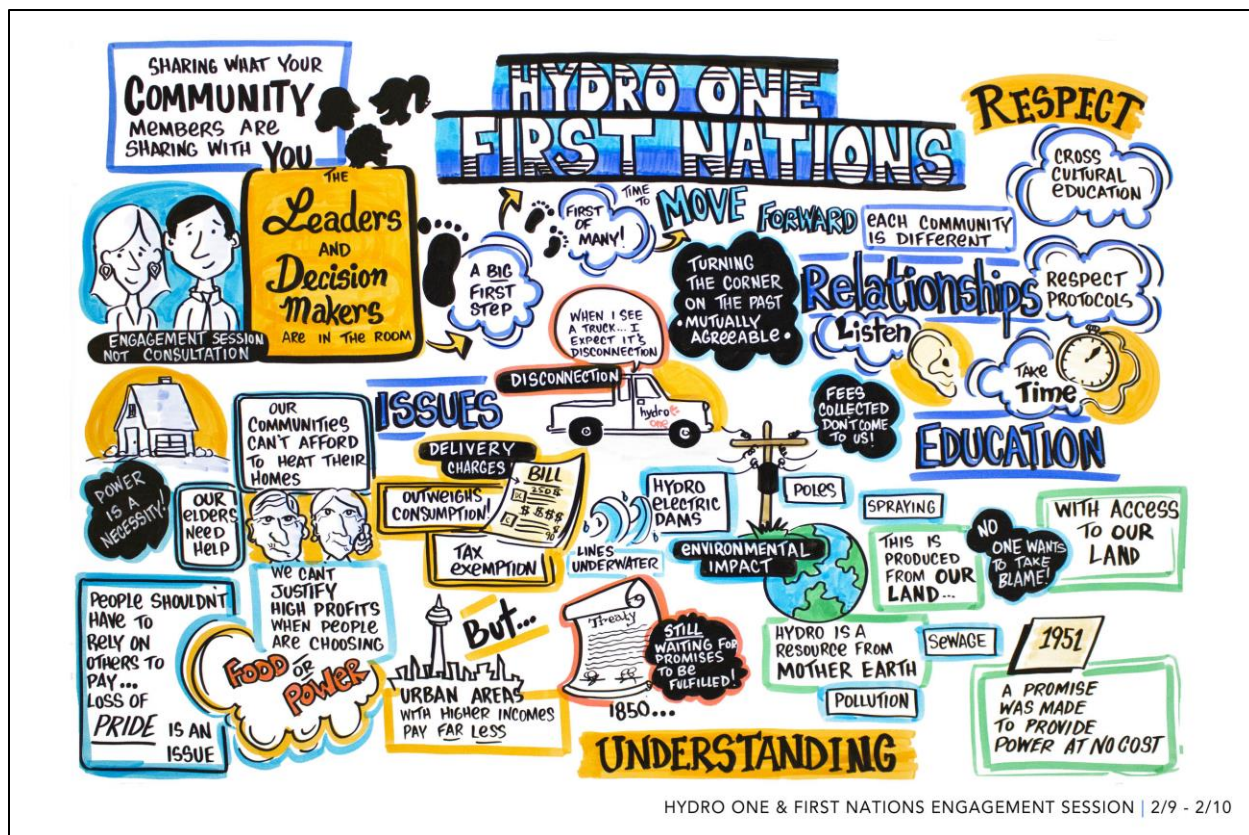 SHARING WHAT YOUR
COMMUNITY
MEMBERS ARE
SHARING WITH YOU
HYDRO ONE
FIRST NATIONS
RESPECT
CROSS
CULTURAL
EDUCATION
THE
Leaders
AND
Decision
Makers
ARE IN THE ROOM
ENGAGEMENT SESSION
NOT CONSULTATION
A BIG
FIRST
STEP
FIRST
OF
MANY!
TIME
TO
MOVE
FORWARD
EACH COMMUNITY
IS DIFFERENT
TURNING
THE CORNER
ON THE PAST
• MUTUALLY
AGREEABLE •
Relationships
RESPECT
PROTOCOLS
Listen
TAKE
Time
WHEN I SEE
A TRUCK... I
EXPECT IT'S
DISCONNECTION
DISCONNECTION
hydro
one
ISSUES
OUR
COMMUNITIES
CAN'T AFFORD
TO HEAT THEIR
HOMES
POWER
IS A
NECESSITY!
OUR
ELDERS
NEED
HELP
DELIVERY
CHARGES
OUTWEIGHS
CONSUMPTION!
BILL
TAX
EXEMPTION
FEES
COLLECTED
DON'T COME
TO US!
EDUCATION
HYDRO
ELECTRIC
DAMS
LINES
UNDERWATER
POLES
ENVIRONMENTAL
IMPACT
SPRAYING
THIS IS
PRODUCED
FROM OUR
LAND...
NO
ONE WANTS
TO TAKE
BLAME!
WITH ACCESS
TO OUR
LAND
PEOPLE SHOULDN'T
HAVE TO
RELY ON
OTHERS TO
PAY...
LOSS OF
PRIDE IS AN
ISSUE
WE CAN'T
JUSTIFY
HIGH PROFITS
WHEN PEOPLE
ARE CHOOSING
FOOD OR
POWER
BUT...
URBAN AREAS
WITH HIGHER INCOMES
PAY FAR LESS
Treaty
1850...
STILL
WAITING FOR
PROMISES
TO BE
FULFILLED!
HYDRO IS A
RESOURCE FROM
MOTHER EARTH
SEWAGE
POLLUTION
1951
A PROMISE
WAS MADE
TO PROVIDE
POWER AT NO COST
UNDERSTANDING
HYDRO ONE & FIRST NATIONS ENGAGEMENT SESSION | 2/9 - 2/10